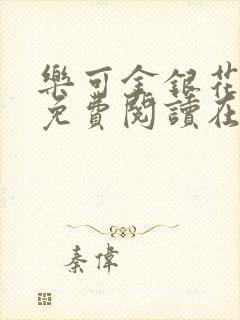 樂可金銀花
免費閱讀在
秦偉